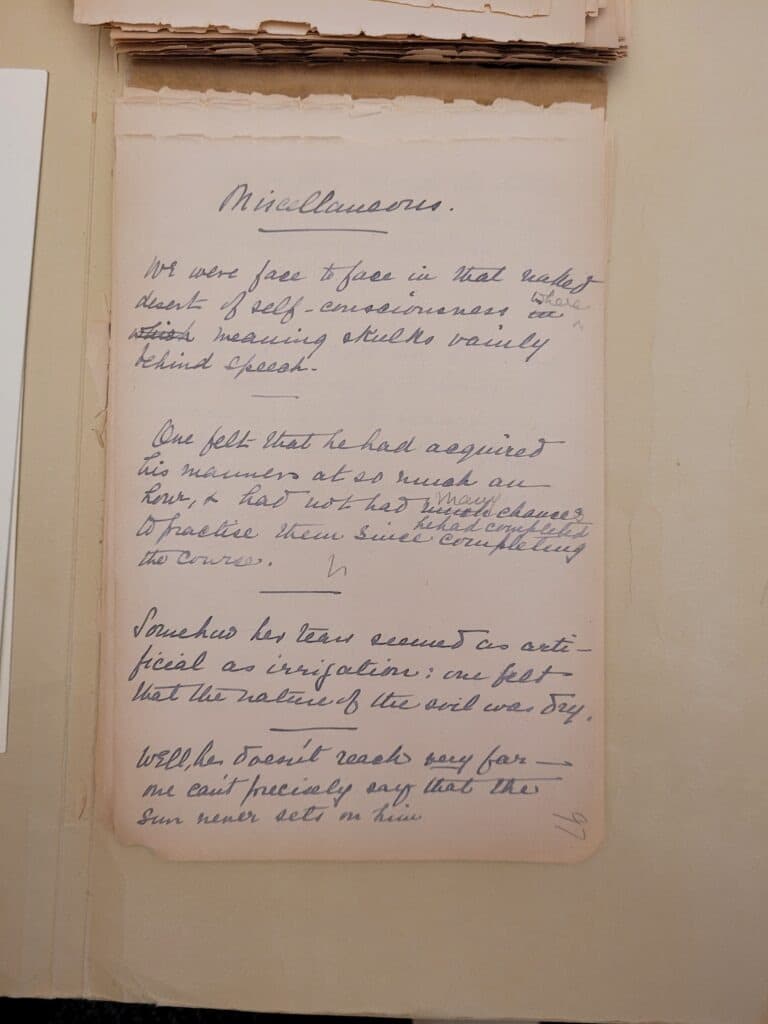 Miscellaneous.
We were face to face in that naked
desert of self-consciousness in where
which meaning skulks vainly
behind speech.
One felt that he had acquired
his manners at so much an
hour, & had not had much many chances
he had completed
to practise them since completing
the course.
Somehow her tears seemed as arti-
ficial as irrigation: one felt
that the nature of the soil was dry.
Well, he doesn't reach very far —
one can't precisely say that the
sun never sets on him
97